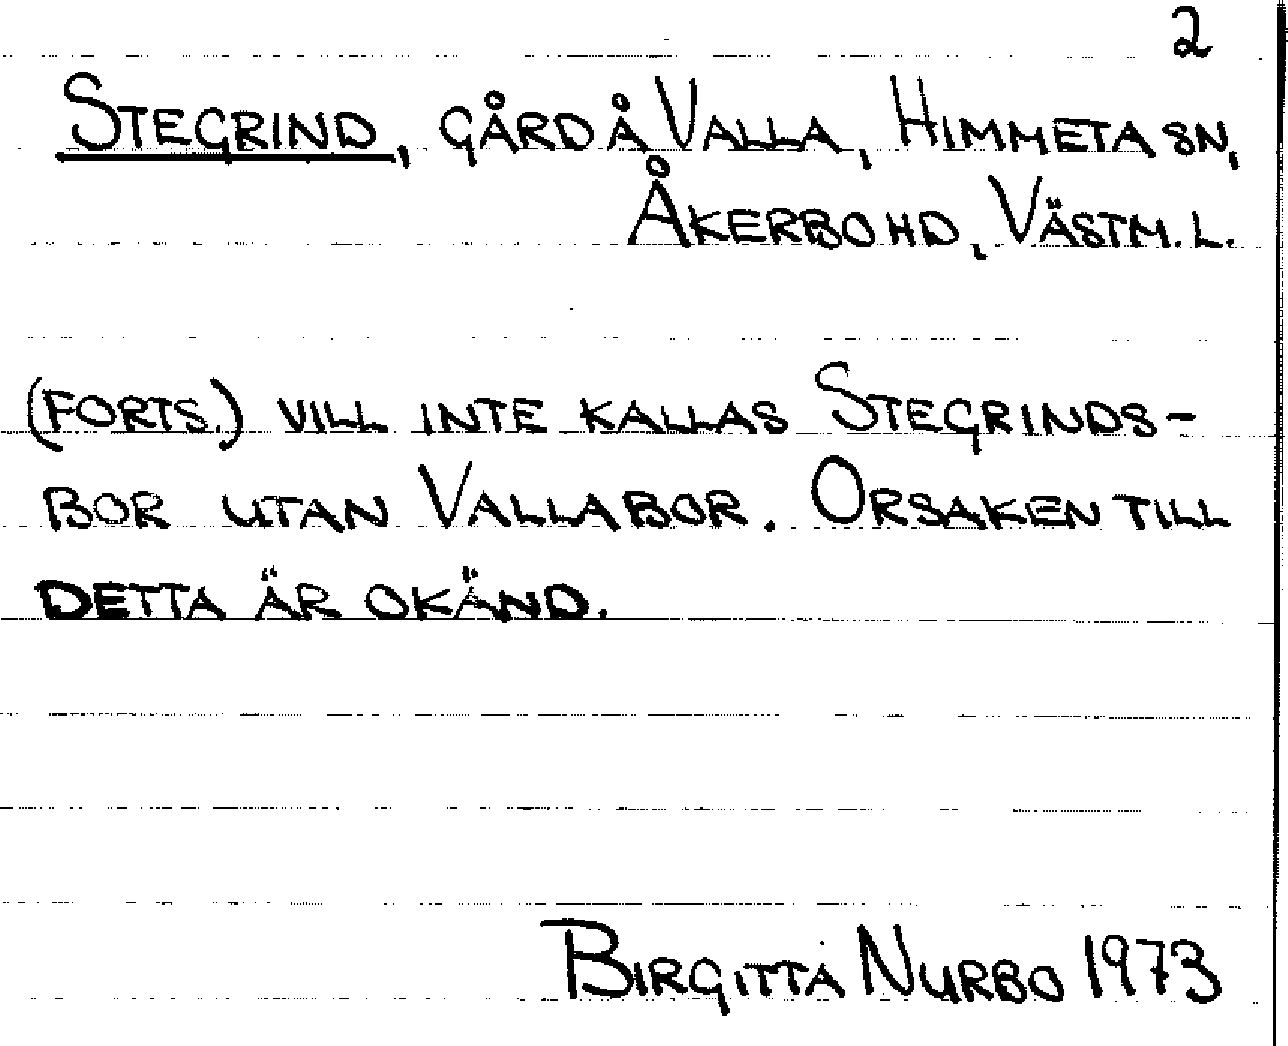 2
STEGRIND, GÅRD Å VALLA, HIMMETA SN,
ÅKERBO HD, VÄSTM. L.
(FORTS.) VILL INTE KALLAS STEGRINDS-
BOR UTAN VALLABOR. ORSAKEN TILL
DETTA ÄR OKÄND.
BIRGITTA NURBO 1973